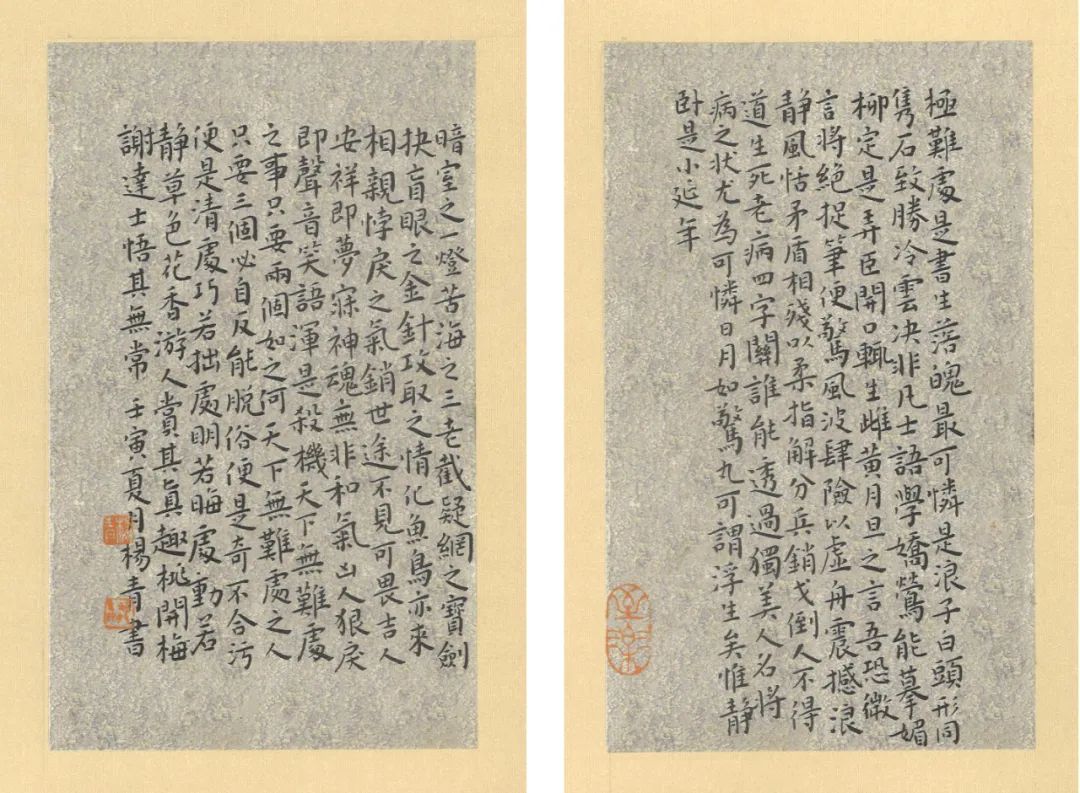 極難處是書生落魄最可憐是浪子白頭形同
雋石致勝冷雲決非凡士語學嬌鶯能摹媚
柳定是弄臣開口輒生雌黃月旦之言吾恐微
言將絕捉筆便驚風波肆險以虛舟震撼浪
靜風恬矛盾相殘以柔指解分兵銷戈倒人不得
道生死老病四字關誰能透過獨美人名將
病之状尤為可憐日月如驚丸可謂浮生矣惟靜
卧是小延年
暗室之一燈苦海之三老截疑網之寶劍
抉盲眼之金針攻取之情化魚鳥亦來
相親悖戾之氣銷世途不見可畏吉人
安祥即夢寐神魂無非和氣凶人狠戾
即聲音笑語渾是殺機天下無難處
之事只要兩個如之何天下無難處之人
只要三個必自反能脫俗便是奇不合污
便是清處巧若拙處明若晦處動若
靜草色花香游人賞其真趣桃開梅
謝達士悟其無常壬寅夏月楊青書